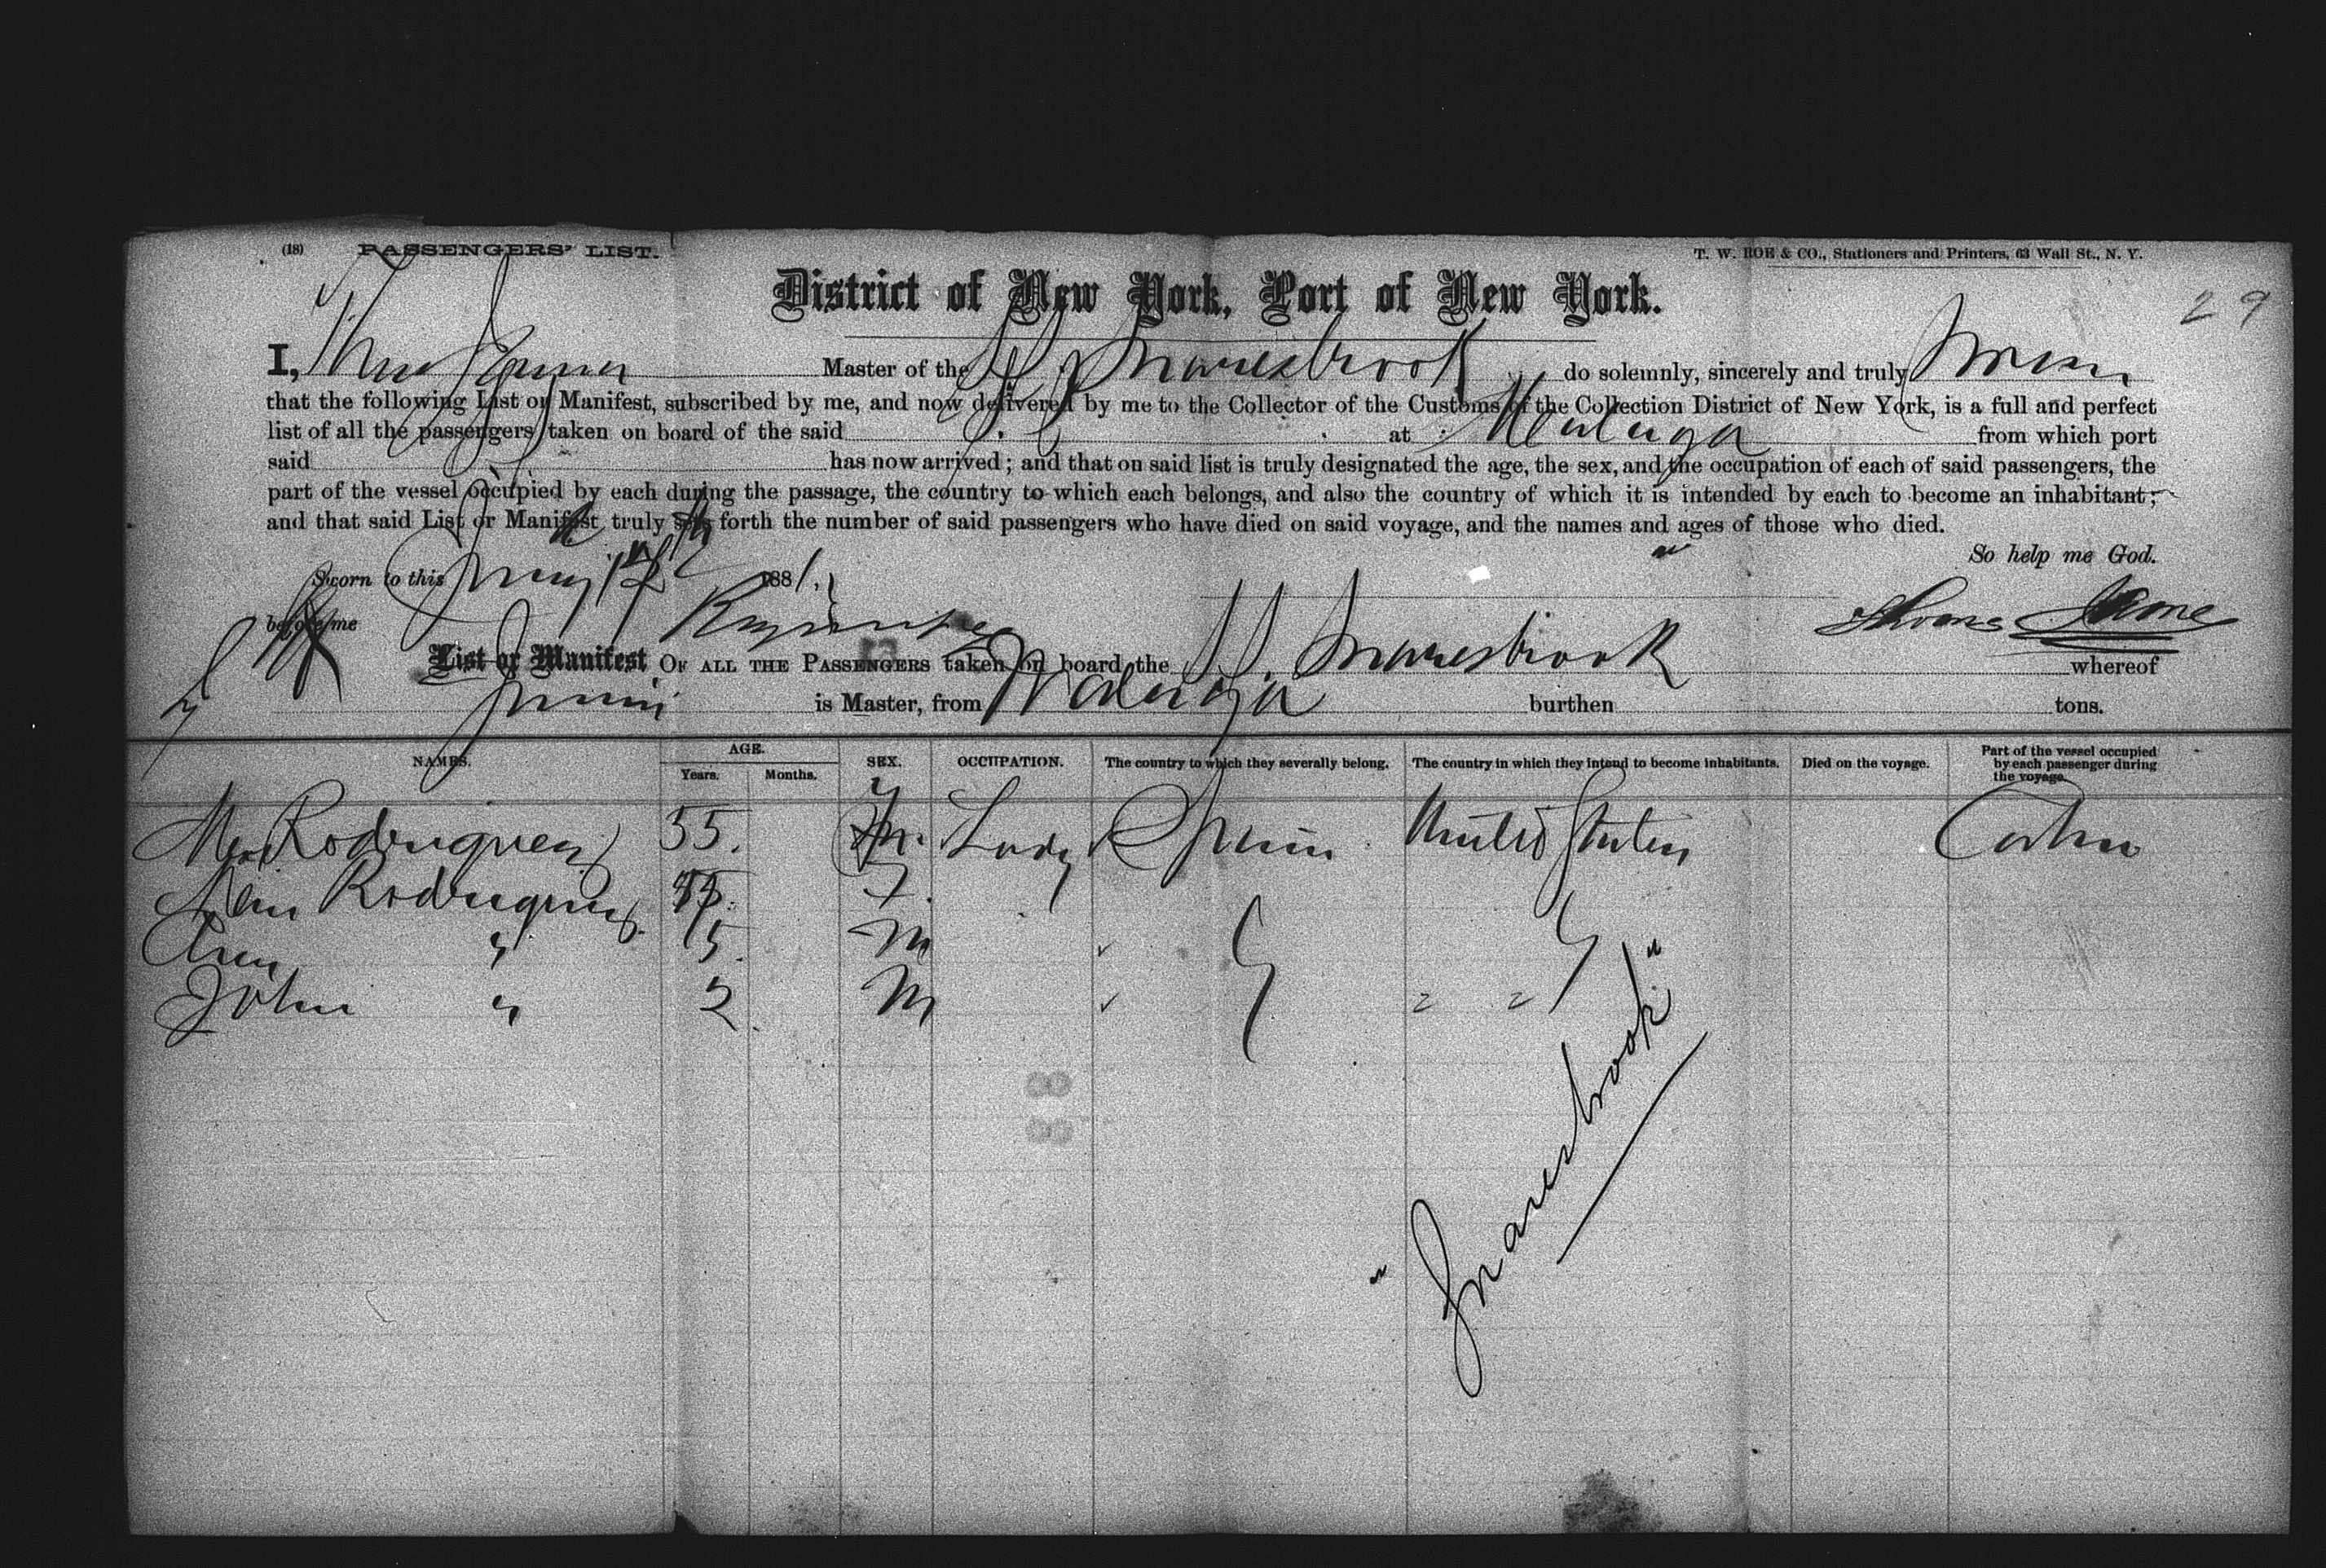 (18) PASSENGERS' LIST. T. W. ROE & CO., Stationers and Printers, 63 Wall St., N. Y.
District of New York, Port of New York.
29
I, Master of the SS Snaresbrook do solemnly, sincerely and truly swear
that the following List or Manifest, subscribed by me, and now delivered by me to the Collector of the Customs of the Collection District of New York, is a full and perfect
list of all the passengers taken on board of the said at Malaga from which port
said has now arrived; and that on said list is truly designated the age, the sex, and the occupation of each of said passengers, the
part of the vessel occupied by each during the passage, the country to which each belongs, and also the country of which it is intended by each to become an inhabitant;
and that said List or Manifest truly sets forth the number of said passengers who have died on said voyage, and the names and ages of those who died.
So help me God.
Sworn to this May 1881.
before me
List or Manifest OF ALL THE PASSENGERS taken on board the SS Snaresbrook whereof
is Master, from Malaga burthen tons.
NAMES. AGE. Years. Months. SEX. OCCUPATION. The country to which they severally belong. The country in which they intend to become inhabitants. Died on the voyage. Part of the vessel occupied by each passenger during the voyage.
Rodriguez 55. Lady Spain United States Cabin
Rodriguez F.
" 5. M
John " 2. M " "
"Snaresbrook"